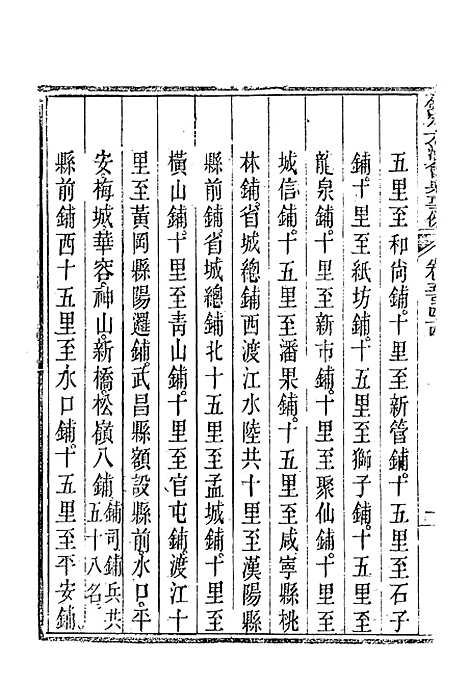 五里至和尙鋪。十里至新管鋪。十五里至石子
鋪。十里至紙坊鋪。十五里至獅子鋪。十五里至
龍泉鋪。十里至新市鋪。十里至聚仙鋪。十里至
城信鋪。十五里至潘果鋪。十五里至咸寧縣桃
林鋪。省城總鋪西渡江水陸共十里至漢陽縣
縣前鋪。省城總鋪北十五里至孟城鋪。十里至
橫山鋪。十里至靑山鋪。十里至官屯鋪。渡江十
里至黃岡縣陽邏鋪。武昌縣額設縣前。水口。平
安。梅城。華容。神山。新橋。松嶺八鋪。鋪司鋪兵共五十八名。
縣前鋪西十五里至水口鋪。十五里至平安鋪